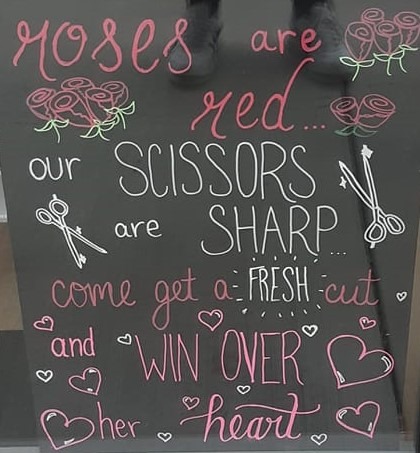 roses are
red...
our SCISSORS
are SHARP...
come get a FRESH cut
and WIN OVER
her heart